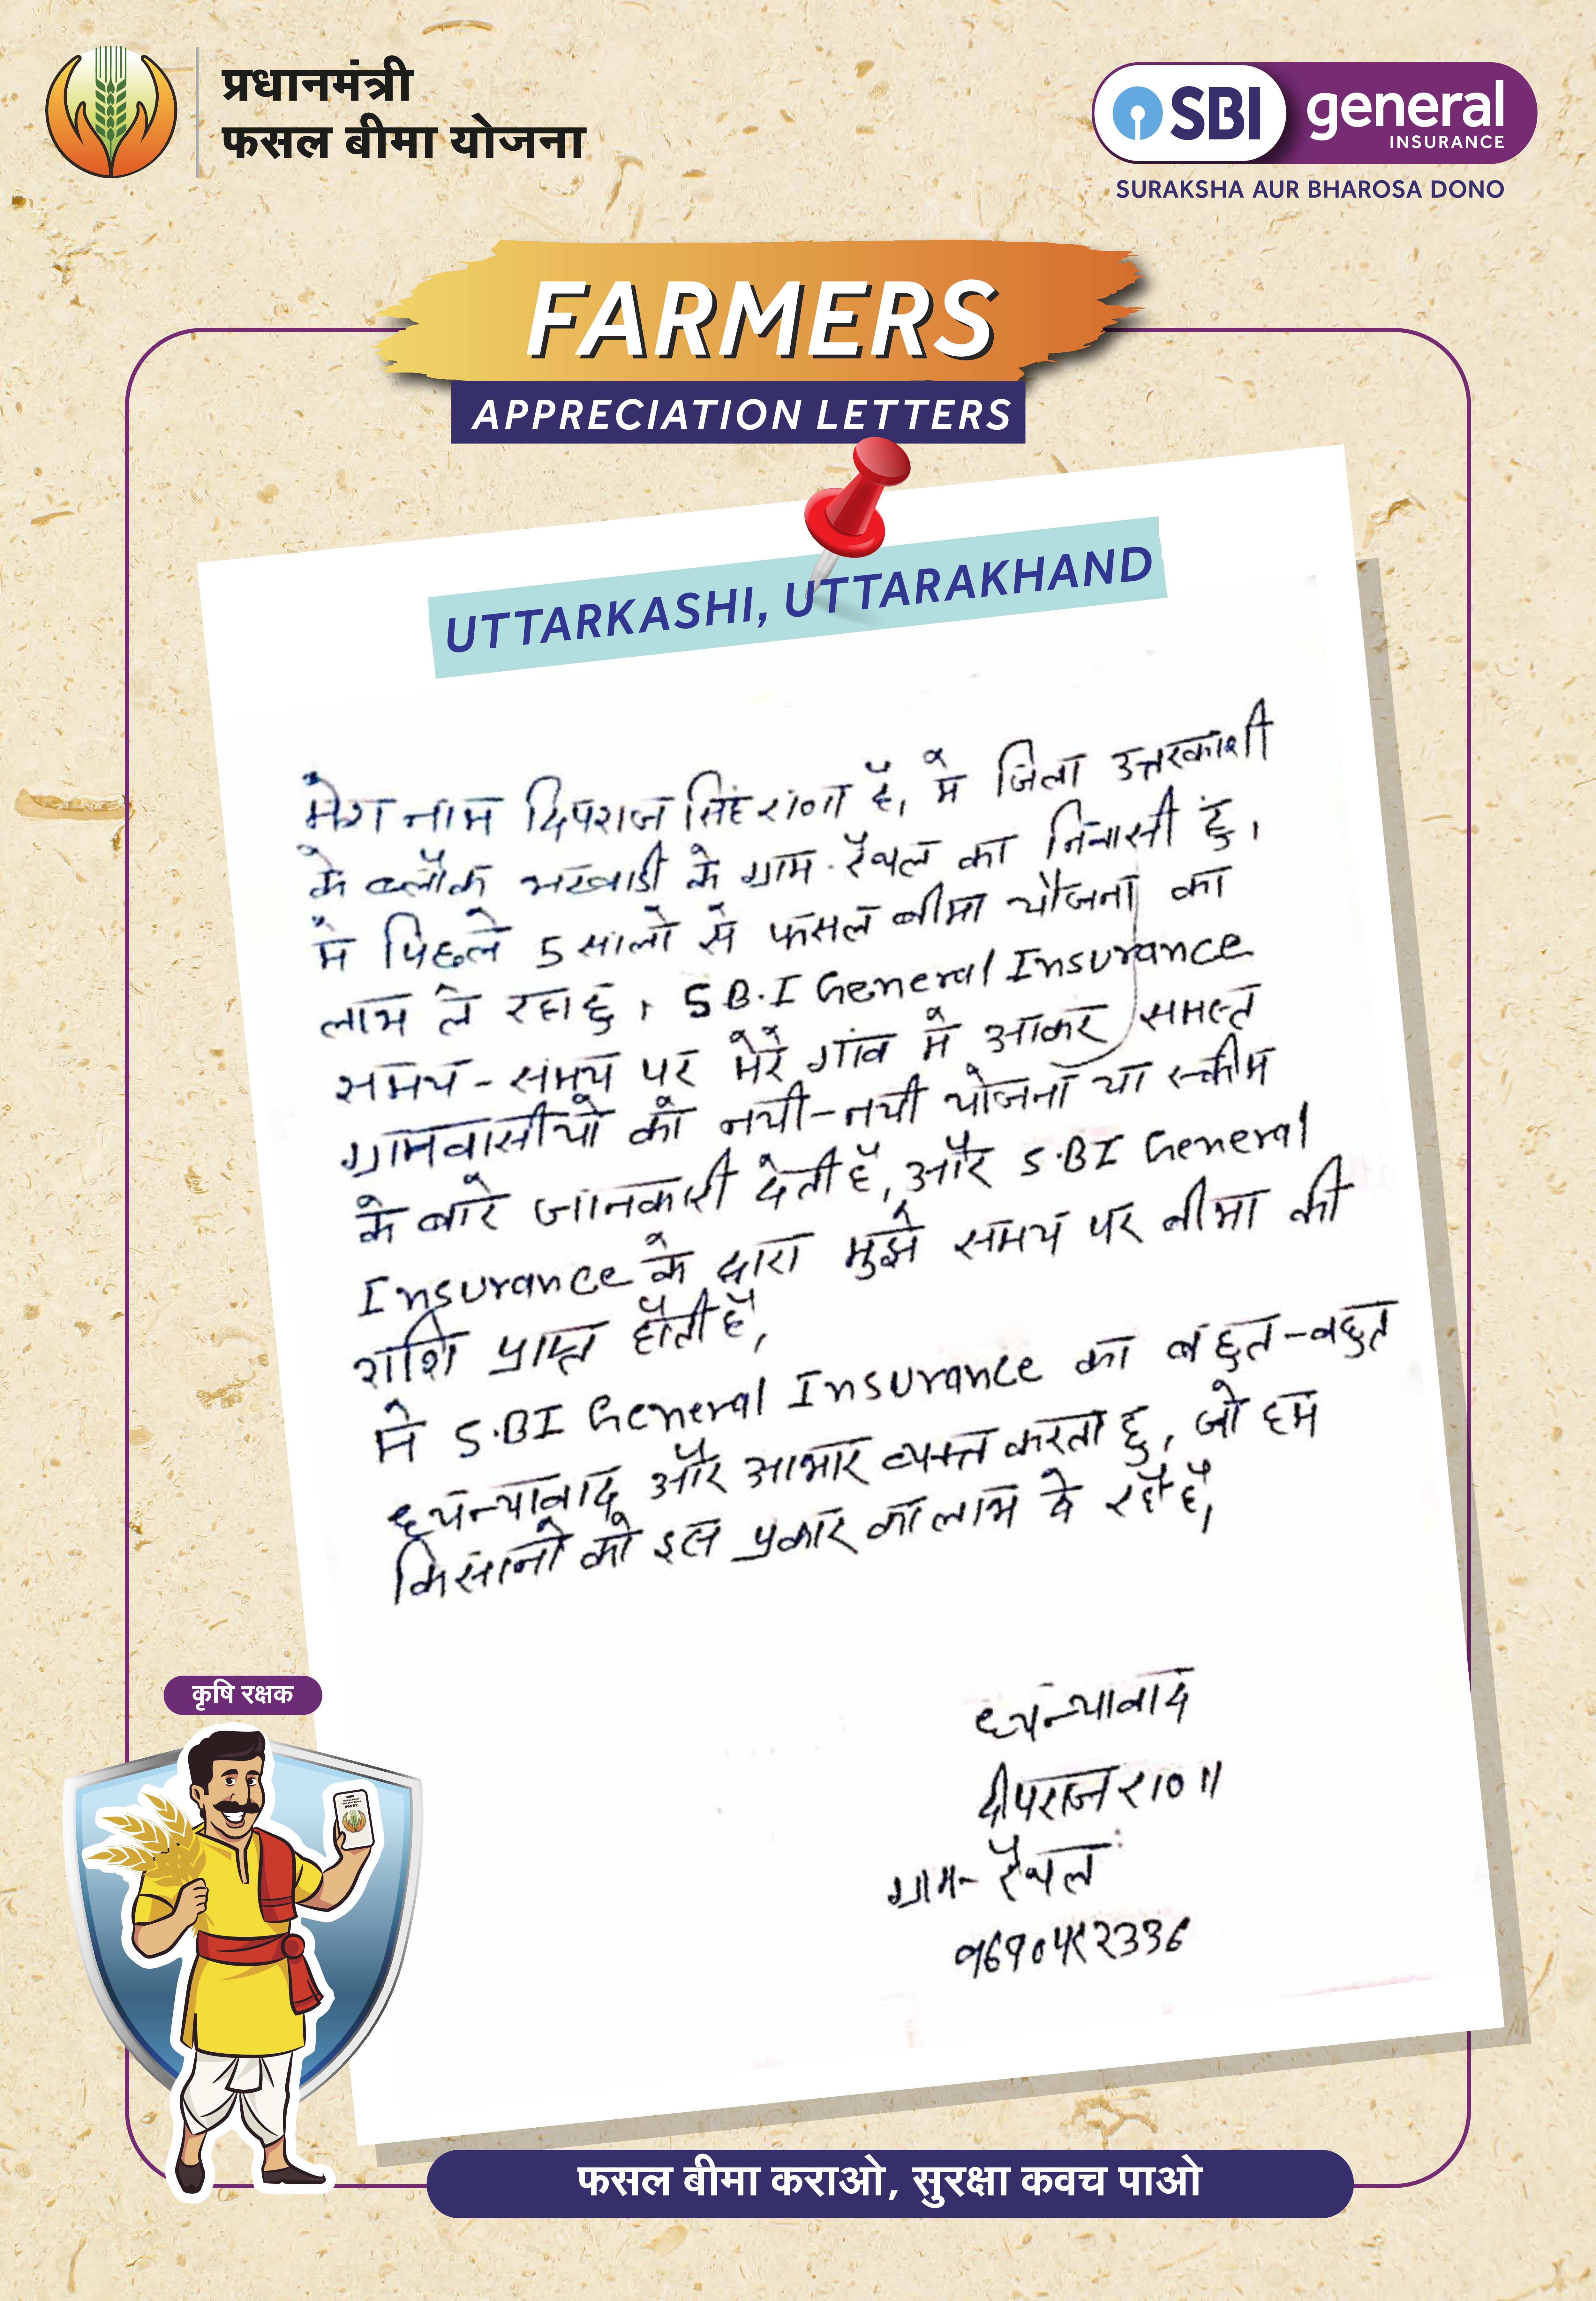 प्रधानमंत्री
फसल बीमा योजना
SBI general
INSURANCE
SURAKSHA AUR BHAROSA DONO
FARMERS
APPRECIATION LETTERS
UTTARKASHI, UTTARAKHAND
मेरा नाम दिपराज सिंह राणा है, मै जिला उत्तरकाशी
के ब्लौक भटवाडी के ग्राम रैथल का निवासी हुं,
मै पिछले 5 सालो से फसल बीमा योजना का
लाभ ले रहा हु, S B.I General Insurance
समय-समय पर मेरे गांव मे आकर समस्त
ग्रामवासीयो को नयी-नयी योजना या स्कीम
के बारे जानकारी देती है, और S.BI General
Insurance के द्वारा मुझे समय पर बीमा की
राशि प्राप्त होती है,
मे S.BI General Insurance का बहुत-बहुत
ध्यन्यावाद और आभार व्यक्त करता हु, जो हम
किसानो को इस प्रकार का लाभ दे रहै है,
ध्यन्यावाद
दीपराज राणा
ग्राम- रैथल
कृषि रक्षक
फसल बीमा कराओ, सुरक्षा कवच पाओ